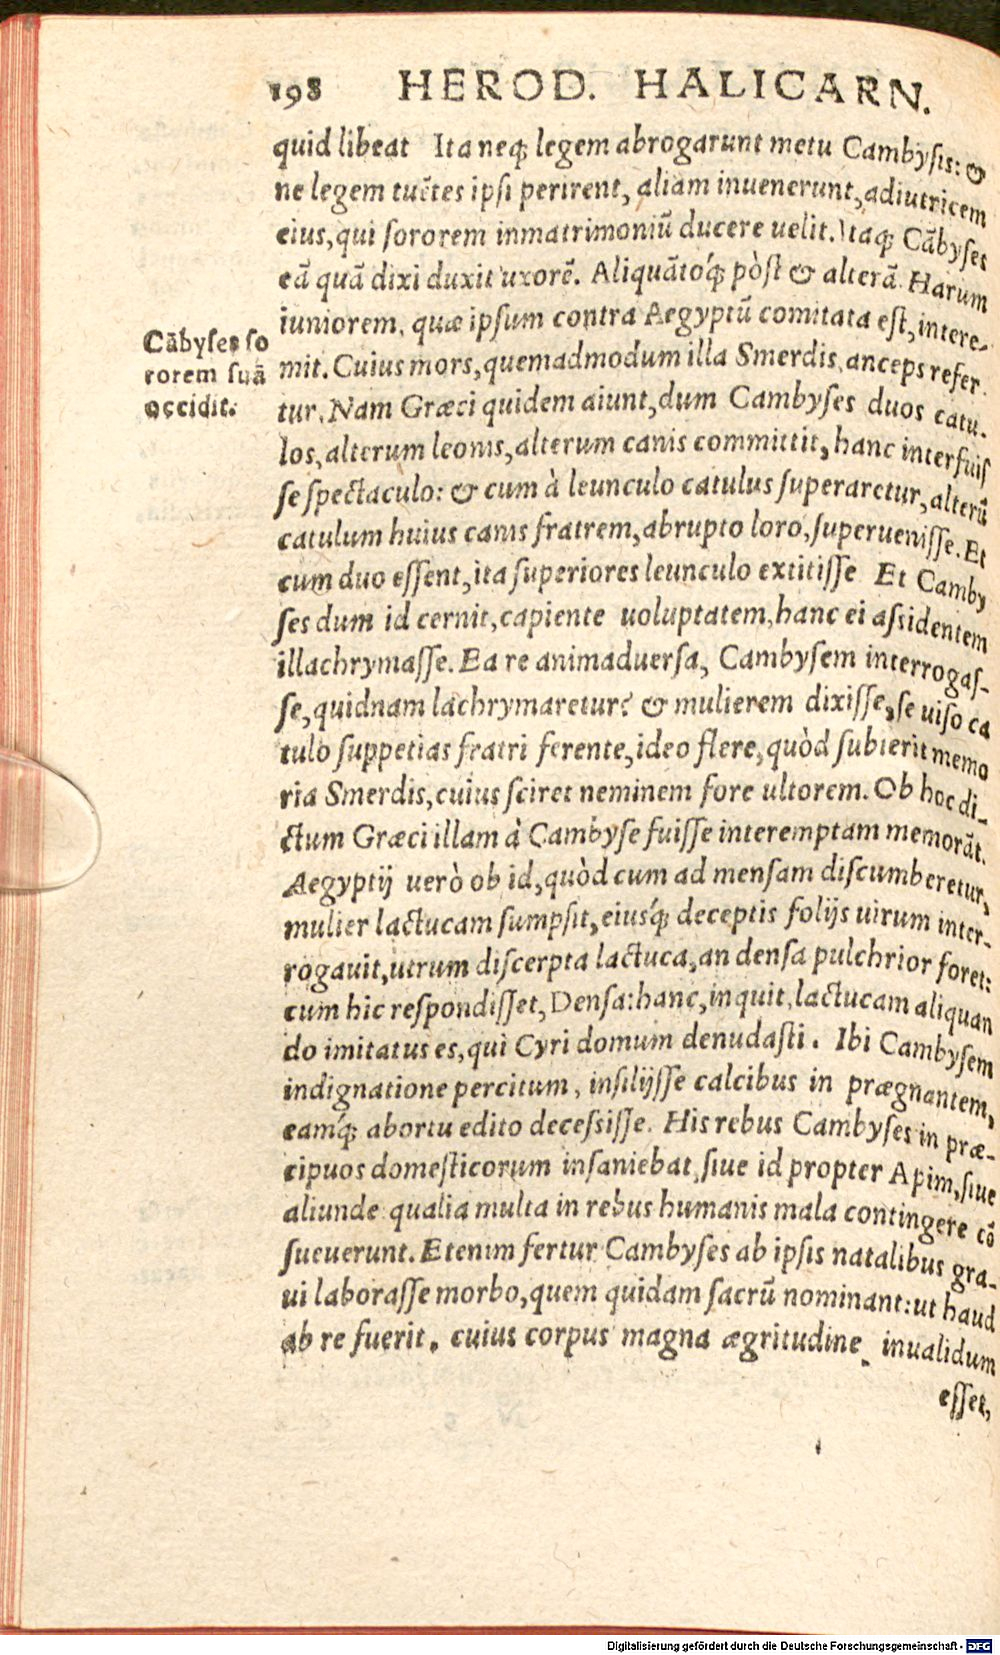 198 HEROD. HALICARN.
quid libeat Ita neq; legem abrogarunt metu Cambysis: &
ne legem tuẽtes ipsi perirent, aliam inuenerunt, adiutricem
eius, qui sororem inmatrimoniũ ducere uelit. Itaq; Cãbyses
eã quã dixi duxit uxorẽ. Aliquãtóq; pòst & alterã. Harum
iuniorem, quæ ipsum contra Aegyptũ comitata est, intere-
Cãbyses so
rorem suã
occidit.
mit. Cuius mors, quemadmodum illa Smerdis, anceps refer
tur. Nam Græci quidem aiunt, dum Cambyses duos catu-
los, alterum leonis, alterum canis committit, hanc interfuis
se spectaculo: & cum à leunculo catulus superaretur, alterũ
catulum huius canis fratrem, abrupto loro, superuenisse. Et
cum duo essent, ita superiores leunculo extitisse Et Camby
ses dum id cernit, capiente uoluptatem, hanc ei assidentem
illachrymasse. Ea re animaduersa, Cambysem interrogas-
se, quidnam lachrymaretur? & mulierem dixisse, se uiso ca
tulo suppetias fratri ferente, ideo flere, quòd subierit memo
ria Smerdis, cuius sciret neminem fore ultorem. Ob hoc di-
ctum Græci illam à Cambyse fuisse interemptam memorãt.
Aegyptij uerò ob id, quòd cum ad mensam discumberetur,
mulier lactucam sumpsit, eiusq́; deceptis folijs uirum inter-
rogauit, utrum discerpta lactuca, an densa pulchrior foret:
cum hic respondisset, Densa: hanc, inquit, lactucam aliquan
do imitatus es, qui Cyri domum denudasti. Ibi Cambysem
indignatione percitum, insilijsse calcibus in prægnantem,
eamq́; abortu edito decessisse. His rebus Cambyses in præ-
cipuos domesticorum insaniebat, siue id propter Apim, siue
aliunde qualia multa in rebus humanis mala contingere cõ
sueuerunt. Etenim fertur Cambyses ab ipsis natalibus gra-
ui laborasse morbo, quem quidam sacrũ nominant: ut haud
ab re fuerit, cuius corpus magna ægritudine inualidum
esset,
Digitalisierung gefördert durch die Deutsche Forschungsgemeinschaft - DFG